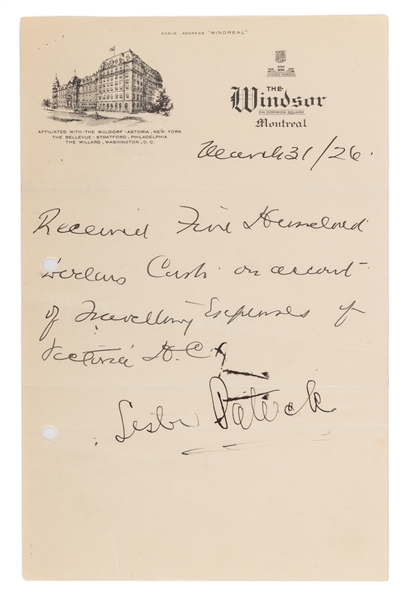 CABLE ADDRESS "WINDREAL"
THE
Windsor
ON DOMINION SQUARE
Montreal
AFFILIATED WITH-THE WALDORF-ASTORIA, NEW YORK
THE BELLEVUE-STRATFORD, PHILADELPHIA
THE WILLARD, WASHINGTON, D.C.
March 31/26.
Received Five Hundred
Dollars Cash on account
of Travelling Expenses of
Victoria H.C.
Lester Patrick